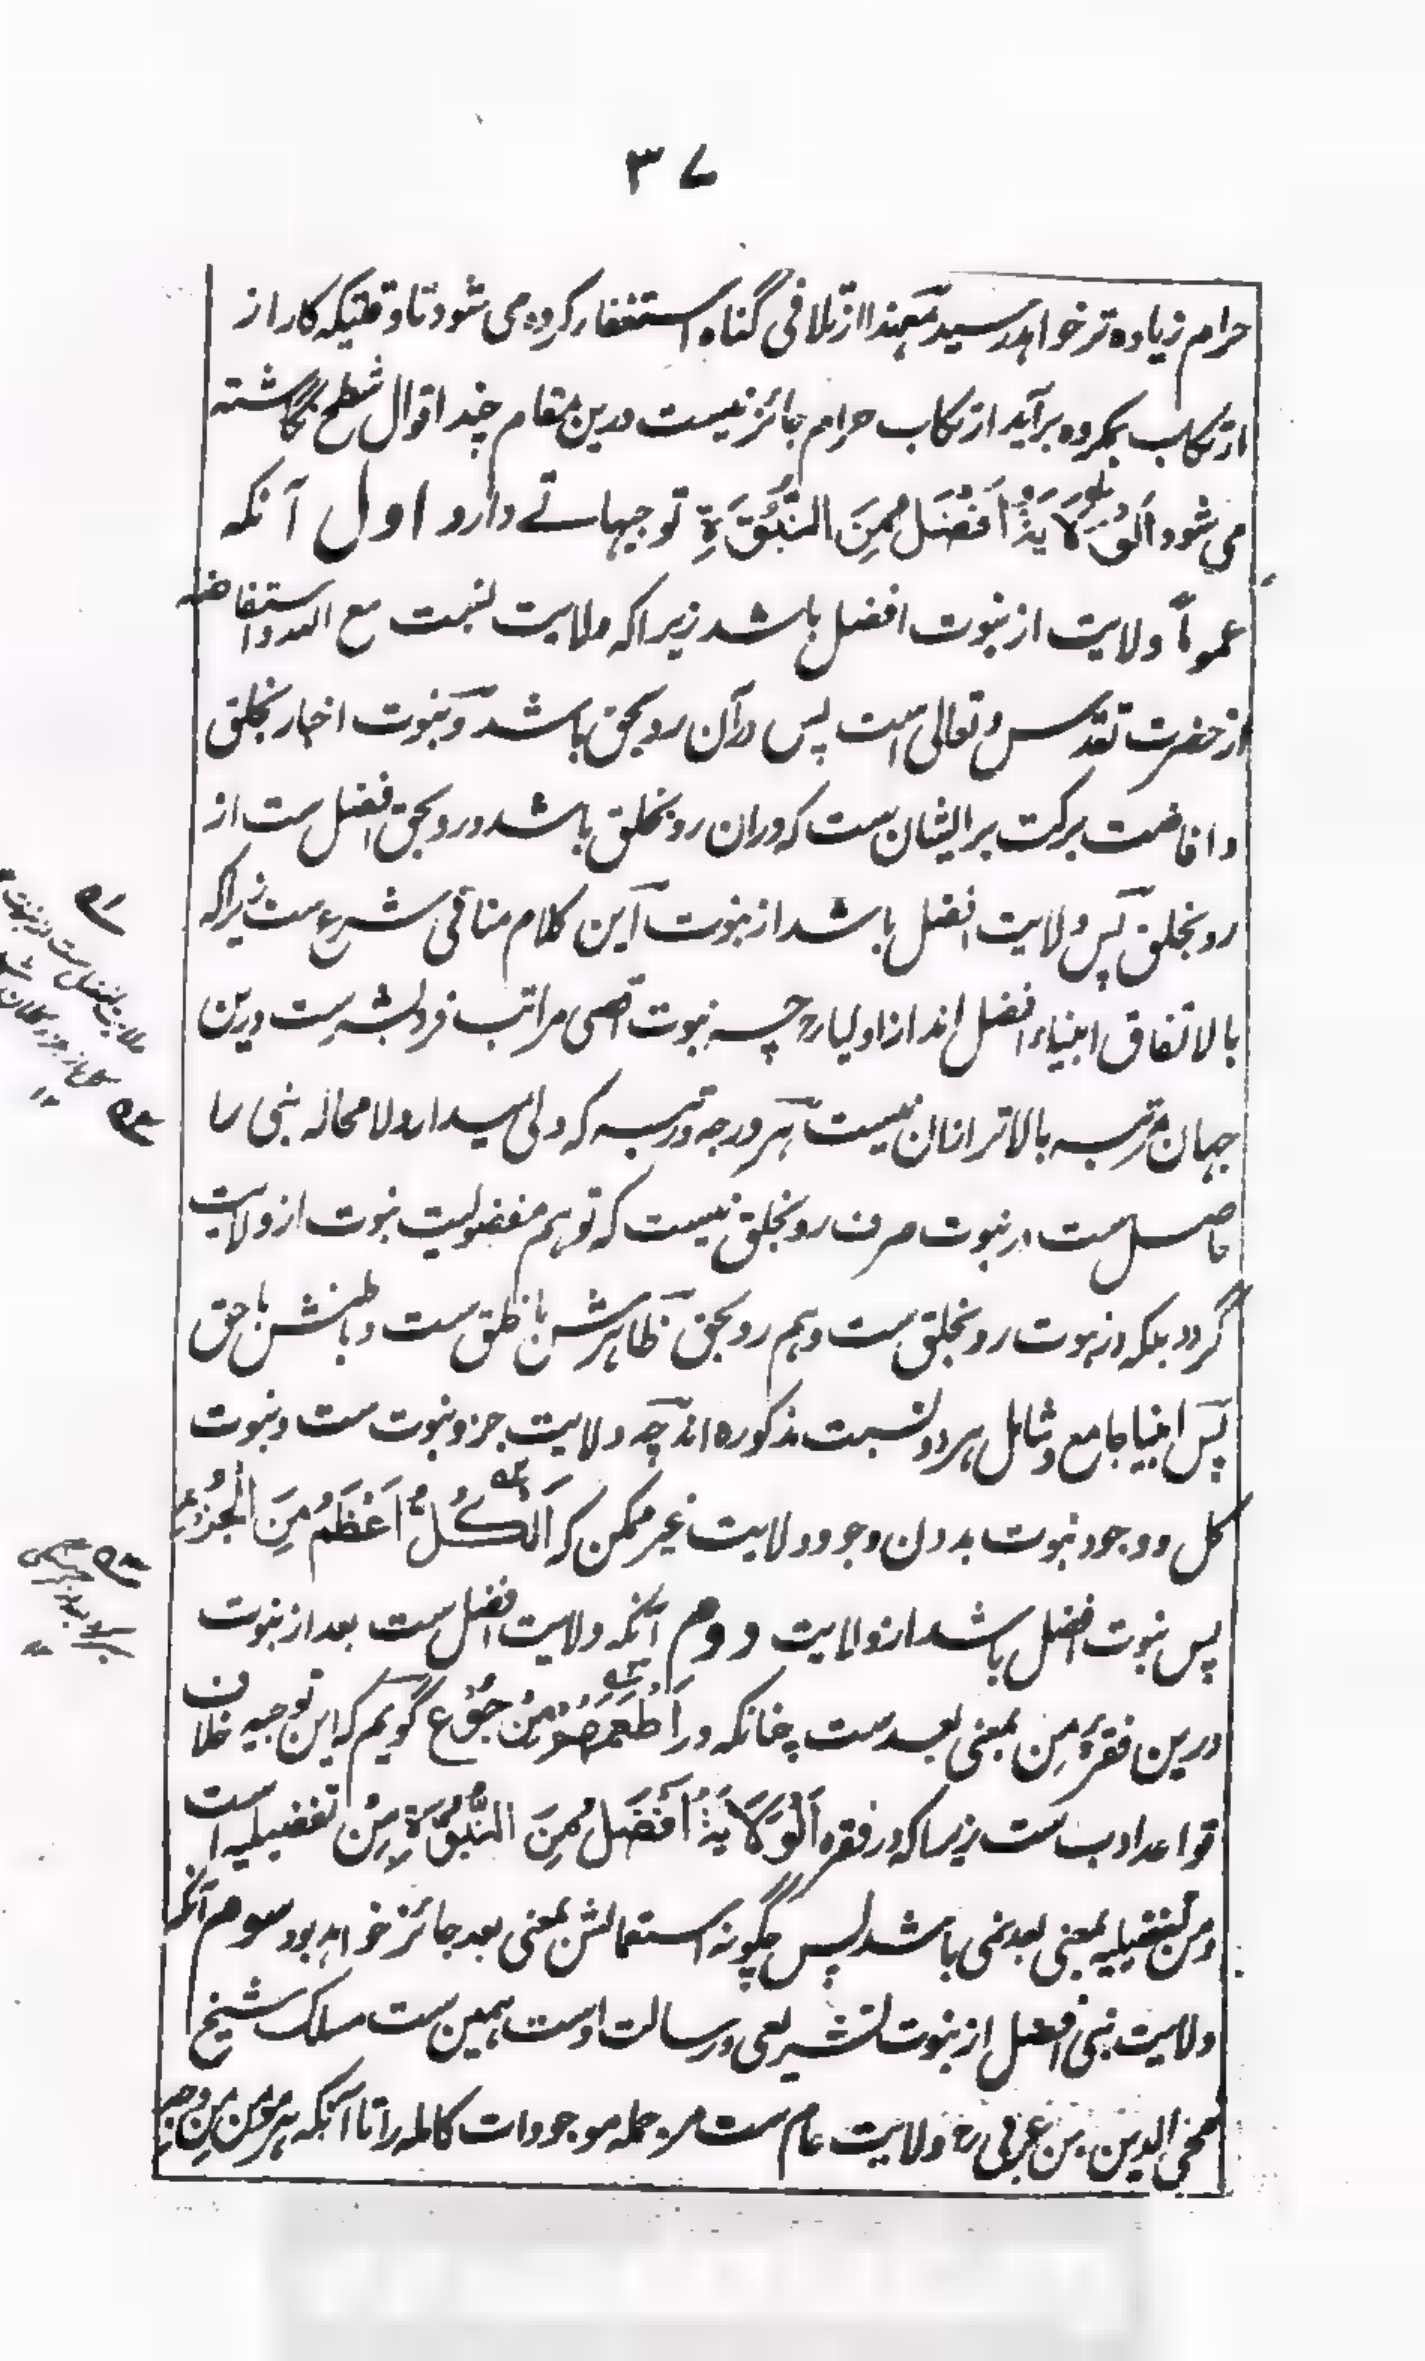 ۳۷
حرام زیاده تر خواهد رسید معهذا از تلافی گناه استغفار کرده می شود تا وقتیکه کار از
ارتکاب مکروه برآید ارتکاب حرام جائز نیست درین مقام چند اقوال شطح نگاشته
می شود اَلْوَلَایَةُ اَفْضَلُ مِنَ النُّبُوَّةِ توجیهاتے دارد اول آنکه
عموماً ولایت از نبوت افضل باشد زیراکه ولایت نسبت مع الله و استفاضه
از حضرت تقدس و تعالی است پس درآن رو بحق باشد و نبوت اخبار بخلق
و افاضت برکت بر ایشان ست که دران رو بخلق باشد و رو بحق افضل ست از
رو بخلق پس ولایت افضل باشد از نبوت این کلام منافی شرع ست زیراکه
بالاتفاق انبیاء افضل اند از اولیا رح چه نبوت اقصی مراتب فرد بشریست درین
جهان مرتبه بالاتر ازان نیست هر درجه و رتبه که ولی میدارد لا محاله نبی را
حاصل ست در نبوت صرف رو بخلق نیست که توهم مفضولیت نبوت از ولایت
گردد بلکه در نبوت رو بخلق ست و هم رو بحق ظاهرش با خلق ست و باطنش با حق
پس انبیا جامع و شامل هر دو نسبت مذکوره اند چه ولایت جزو نبوت ست و نبوت
کل و وجود نبوت بدون وجود ولایت غیر ممکن که اَلْکُلُّ اَعْظَمُ مِنَ الْجُزْءِ
پس نبوت افضل باشد از ولایت دوم آنکه ولایت افضل ست بعد از نبوت
درین فقره مِن بمعنی بعد ست چنانکه در اَطْعَمَهُمْ مِنْ جُوْعٍ گویم که این توجیه خلاف
قواعد ادب ست زیراکه در فقره اَلْوَلَایَةُ اَفْضَلُ مِنَ النُّبُوَّةِ مِنْ تفضیلیه است
و من تفضیلیه بمعنی بعد نمی باشد پس چگونه استعمالش بمعنی بعد جائز خواهد بود سوم آنکه
ولایت نبی افضل از نبوت تشریعی و رسالت اوست همین ست مسلک شیخ
محی الدین بن عربی رح ولایت عام ست مر جمله موجودات کامله را تا آنکه هر مومن من وجه